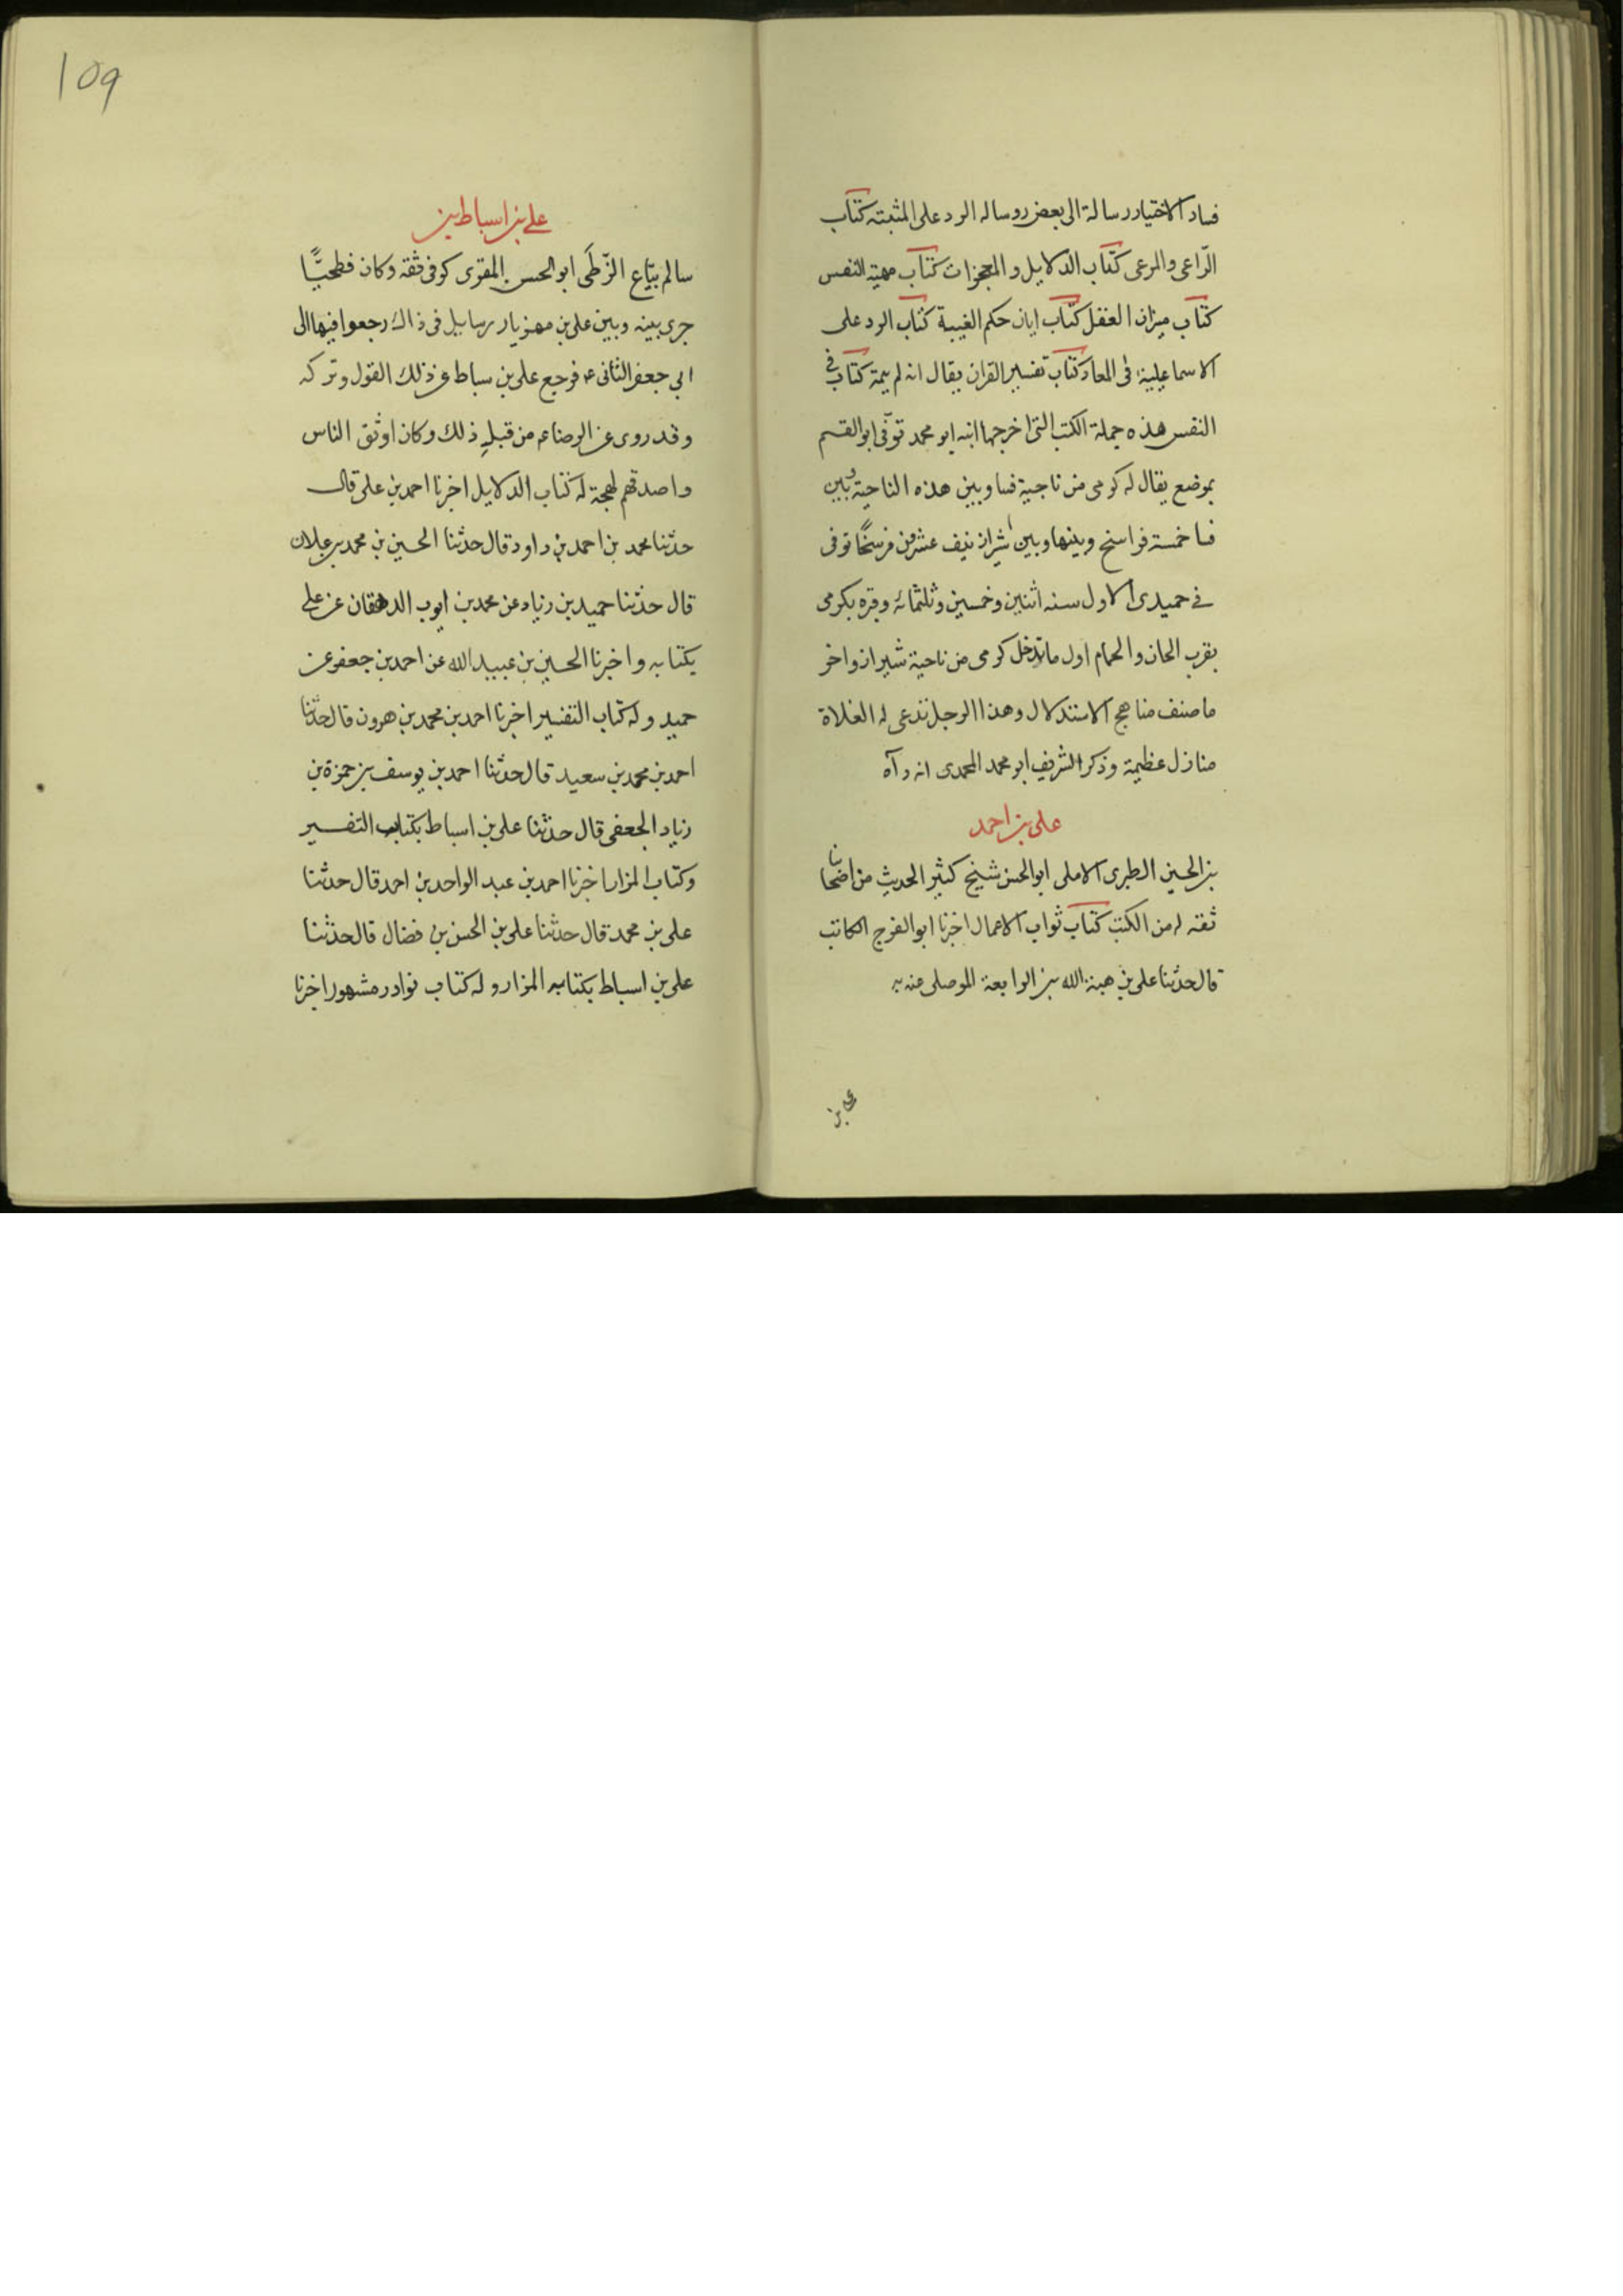 فساد الاختيار رسالة الى بعض روساله الرد على المثبته كتاب
الراعى والمرعى كتاب الدلايل و المعجزات كتاب مهية النفس
كتاب ميزان العقل كتاب ابان حكم الغيبة كتاب الرد على
الاسماعيلية فى المعاد كتاب تفسير القران يقال انه لم يتمه كتاب فى
النفس هذه جملة الكتب التى اخرجها ابنه ابو محمد توفى ابو القسم
بموضع يقال له كرمى من ناحية فسا وبين هذه الناحية وبين
فسا خمسة فراسخ وبينها وبين شيراز نيف عشرون فرسخا توفى
فى جميدى الاول سنه اثنين وخمسين وثلثمائه وقبره بكرمى
بقرب الخان والحمام اول ما تدخل كرمى من ناحية شيراز واخر
ما صنف مناهج الاستدلال وهذا الرجل تدعى له الغلاة
منازل عظيمة وذكر الشريف ابو محمد المحمدى انه رآه
على بن احمد
بن الحسين الطبرى الاملى ابو الحسن شيخ كثير الحديث من اصحابنا
ثقه له من الكتب كتاب ثواب الاعمال اخبرنا ابو الفرج الكاتب
قال حدثنا على بن هبة الله بن الرابعة الموصلى عنه به
على بن
109
على بن اسباط بن
سالم بيّاع الزّطى ابو الحسن المقرى كوفى ثقه وكان فطحيًّا
جرى بينه وبين على بن مهزيار رسايل فى ذاك رجعوا فيها الى
ابى جعفر الثانى ع فرجع على بن سباط عن ذلك القول وتركه
وقد روى عن الرضا ع من قبل ذلك وكان اوثق الناس
واصدقهم لهجة له كتاب الدلايل اخبرنا احمد بن على قال
حدثنا محمد بن احمد بن داود قال حدثنا الحسين بن محمد بن علان
قال حدثنا حميد بن زياد عن محمد بن ايوب الدهقان عن على
بكتابه واخبرنا الحسين بن عبيد الله عن احمد بن جعفر عن
حميد وله كتاب التفسير اخبرنا احمد بن محمد بن هرون قال حدثنا
احمد بن محمد بن سعيد قال حدثنا احمد بن يوسف بن حمزة بن
زياد الجعفى قال حدثنا على بن اسباط بكتاب التفسير
وكتاب المزار اخبرنا احمد بن عبد الواحد بن احمد قال حدثنا
على بن محمد قال حدثنا على بن الحسن بن فضال قال حدثنا
على بن اسباط بكتابه المزار وله كتاب نوادر مشهور اخبرنا